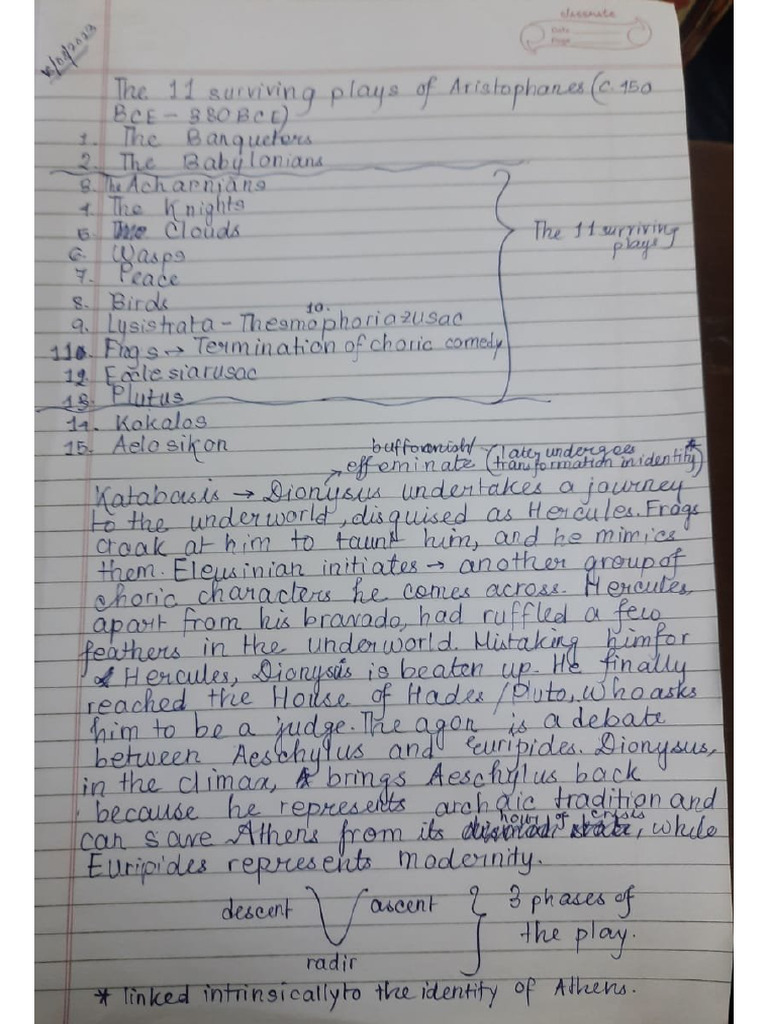 classmate
Date
Page
16/08/2023
The 11 surviving plays of Aristophanes (C. 450
BCE - 380 BCE)
1. The Banqueters
2. The Babylonians
3. The Acharnians
4. The Knights
5. The Clouds
6. Wasps
7. Peace
8. Birds
10.
9. Lysistrata - Thesmophoriazusac
11. Frogs → Termination of choric comedy
12. Ecclesiarusac
13. Plutus
The 11 surviving
plays
14. Kokalos
15. Aelosikon
buffoonish/
effeminate (later undergoes
transformation in identity)*
Katabasis → Dionysus undertakes a journey
to the underworld, disguised as Hercules. Frogs
croak at him to taunt him, and he mimics
them. Eleusinian initiates → another group of
choric characters he comes across. Hercules,
apart from his bravado, had ruffled a few
feathers in the underworld. Mistaking him for
Hercules, Dionysus is beaten up. He finally
reached the House of Hades / Pluto, who asks
him to be a judge. The agon is a debate
between Aeschylus and Euripides. Dionysus,
in the climax, brings Aeschylus back
because he represents archaic tradition and
hour of crysis
can save Athens from its, while
Euripides represents modernity.
descent ascent 3 phases of
the play.
radir
* linked intrinsically to the identity of Athens.